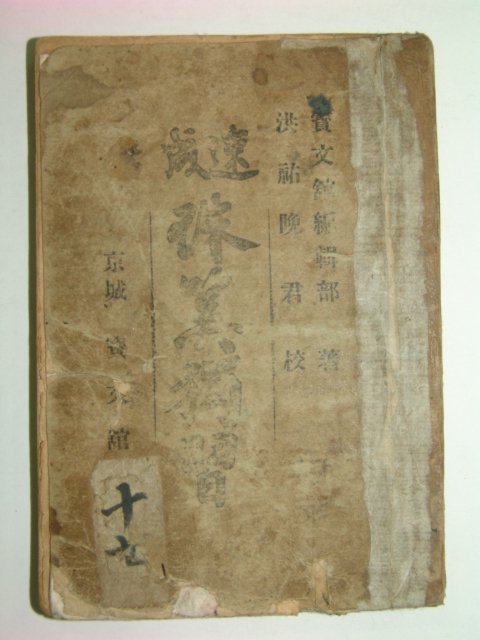 寶文舘編輯部 著
洪祐晩君 校
速成
珠算獨習
京城 寶文舘
十六